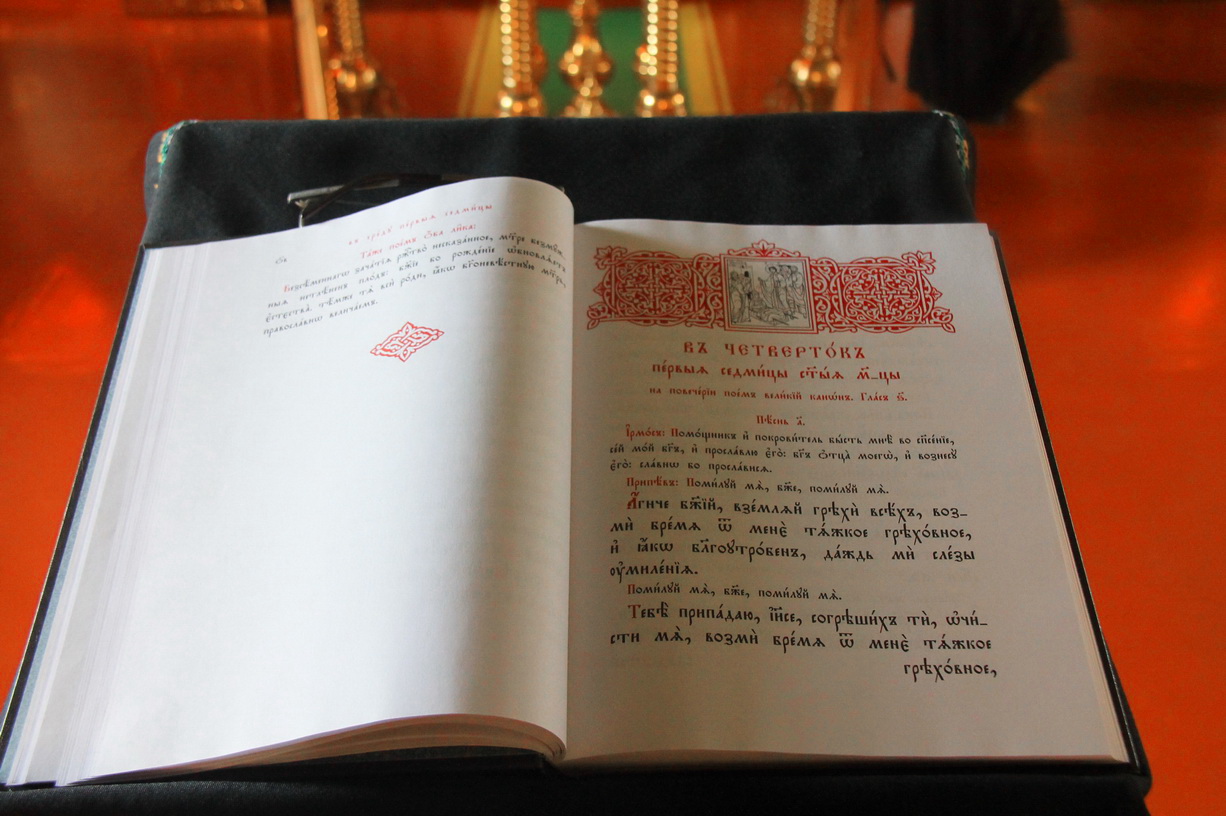 въ сре́дꙋ пе́рвыѧ седми́цы
Та́же пое́мъ ѻ҆́ба ли́ка:
Безсѣ́меннагѡ зача́тїѧ ржⷭ҇тво̀ несказа́нное, мт҃ре безмꙋ́ж-
ныѧ нетлѣ́ненъ пло́дъ: бж҃їе бо рожде́нїе ѡ҆бновлѧ́етъ
є҆стества̀. тѣ́мже тѧ̀ всѝ ро́ди, ꙗ҆́кѡ бг҃оневѣ́стнꙋю мт҃рь,
правосла́внѡ велича́емъ.
ВЪ ЧЕТВЕРТО́КЪ
пе́рвыѧ седми́цы ст҃ы́ѧ м҃-цы
на повече́рїи пое́мъ вели́кїй кано́нъ. Гла́съ ѕ҃.
Пѣ́снь а҃.
І҆рмо́съ: Помо́щникъ и҆ покрови́тель бы́сть мнѣ̀ во сп҃се́нїе,
се́й мо́й бг҃ъ, и҆ просла́влю є҆го̀: бг҃ъ ѻ҆тца̀ моегѡ̀, и҆ вознесꙋ̀
є҆го̀: сла́внѡ бо просла́висѧ.
Припѣ́въ: Поми́лꙋй мѧ̀, бж҃е, поми́лꙋй мѧ̀.
А҆́гнче бж҃їй, взе́млѧй грѣхѝ всѣ́хъ, воз-
мѝ бре́мѧ ѿ менє̀ тѧ́жкое грѣхо́вное,
и҆ ꙗ҆́кѡ бл҃гоꙋтро́бенъ, да́ждь мѝ сле́зы
ᲂу҆миле́нїѧ.
Поми́лꙋй мѧ̀, бж҃е, поми́лꙋй мѧ̀.
Тебѣ̀ припа́даю, і҆и҃се, согрѣши́хъ тѝ, ѡ҆чи́-
сти мѧ̀, возмѝ бре́мѧ ѿ менє̀ тѧ́жкое
грѣхо́вное,